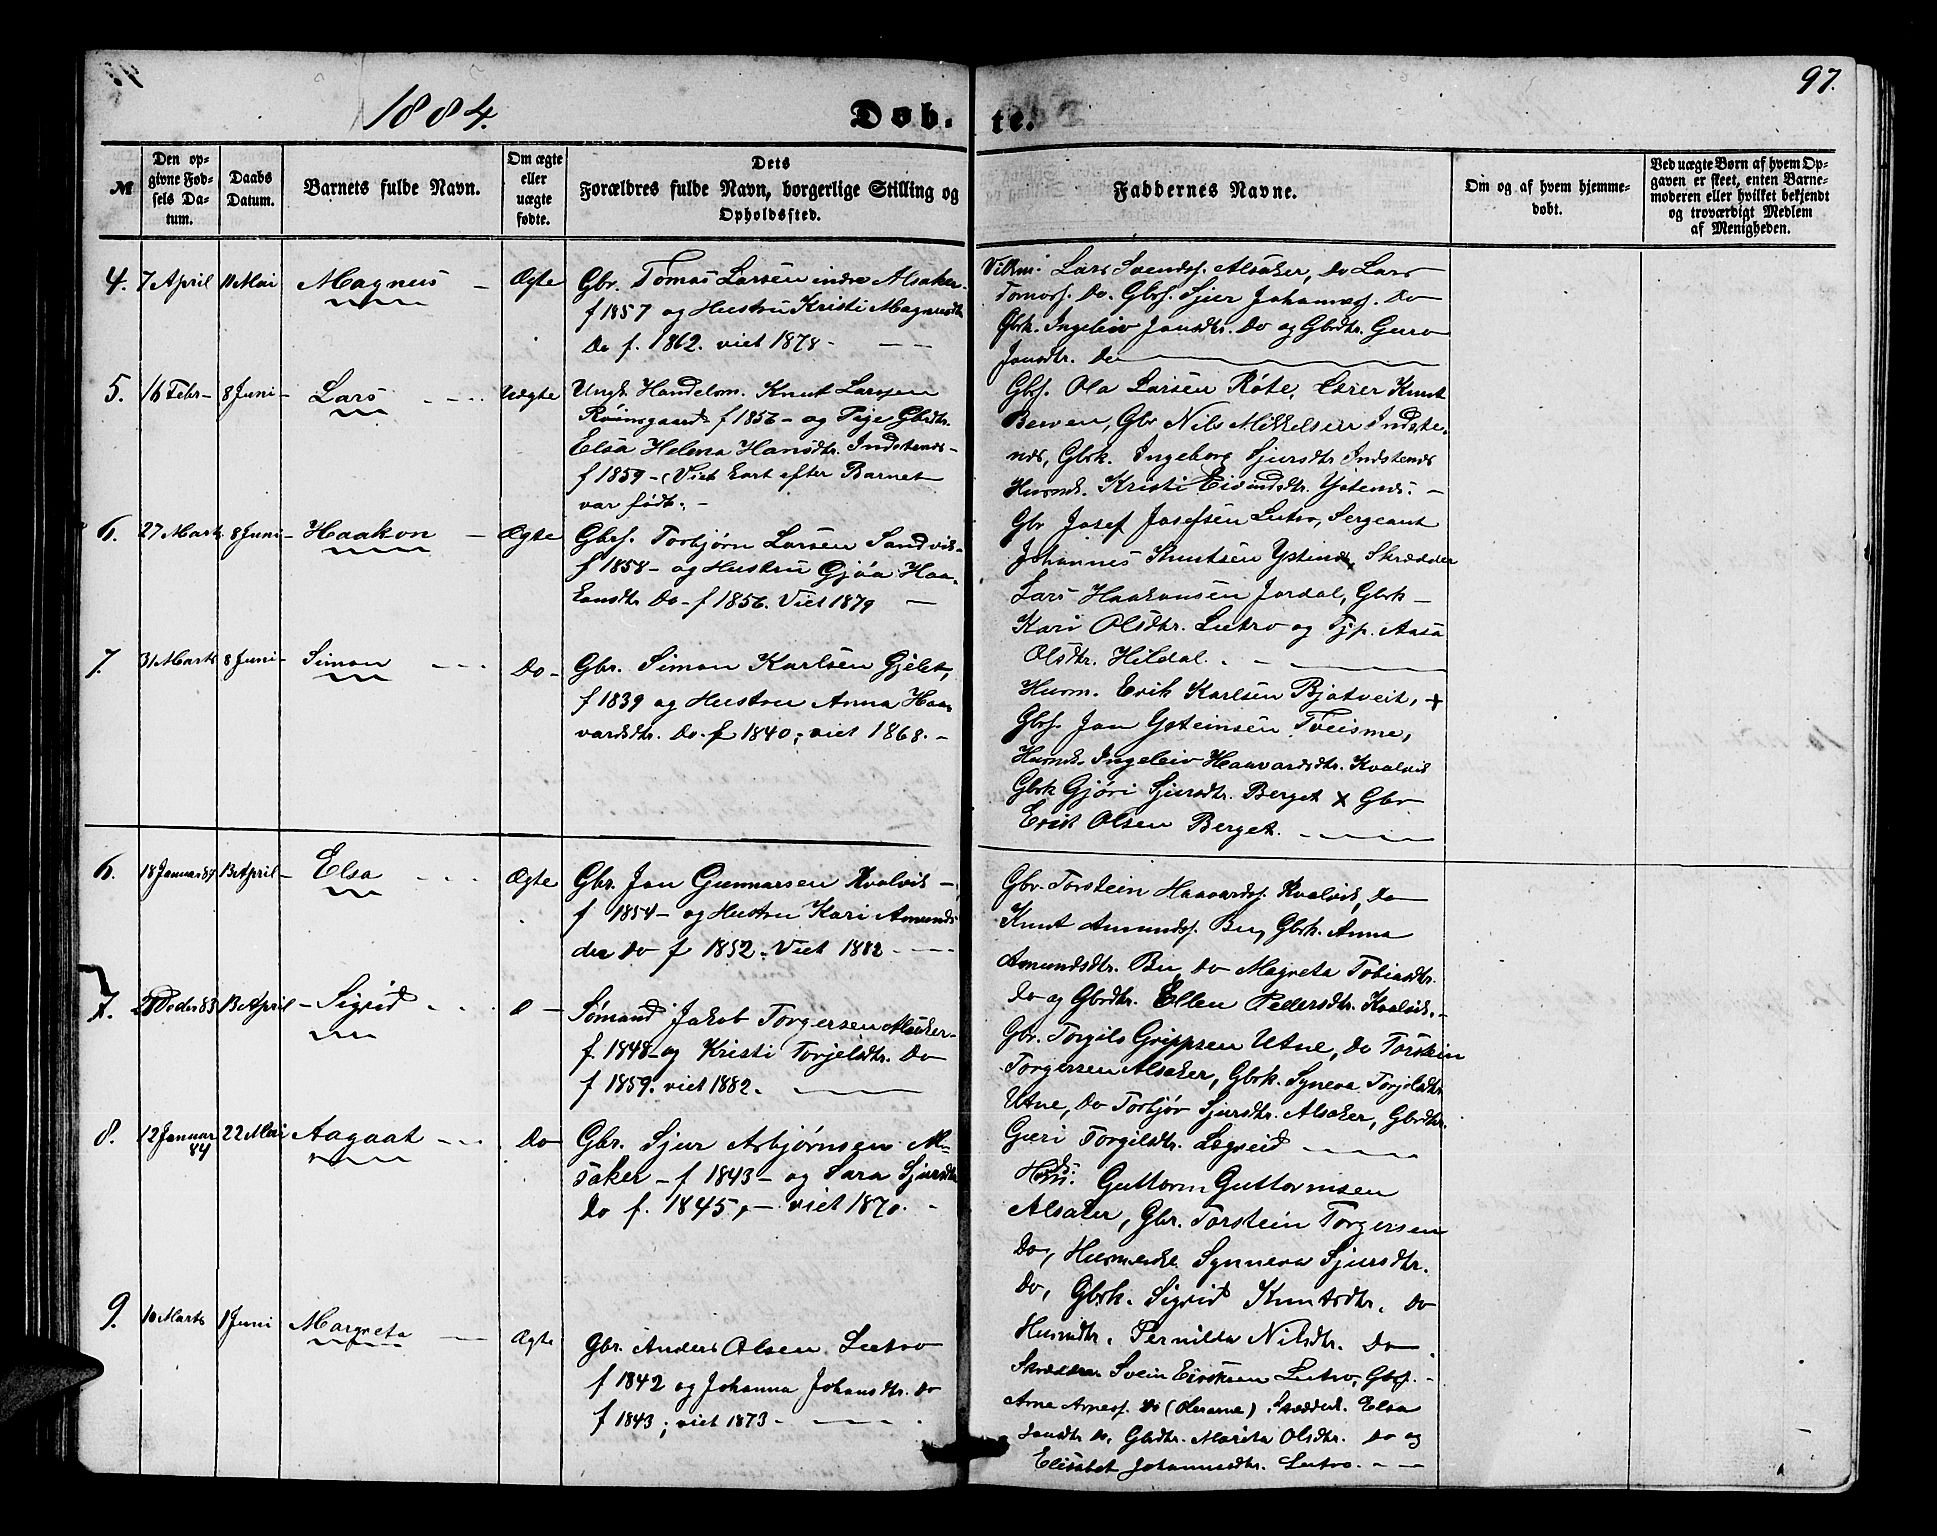 97.
1884.
Døb-te.
№
Den opgivne Fødsels Datum.
Daabs Datum.
Barnets fulde Navn.
Om ægte eller uægte fødte.
Dets Forældres fulde Navn, borgerlige Stilling og Opholdssted.
Faddernes Navne.
Om og af hvem hjemmedøbt.
Ved uægte Børn af hvem Opgaven er skeet, enten Barnemoderen eller hvilket bekjendt og troværdigt Medlem af Menigheden.
4. 7 April 11 Mai Magnus - Ægte
Gbr. Tomas Larsen indre Alsaker
f 1857 og Hustru Kristi Magnusdtr
Do f. 1862. viet 1878 -
Lars Svends. Alsaker, Do Lars
Tomass. Do. Gbrs. Sjur Johanness. Do
Gbrk. Ingeleiv Jansdtr. Do og Gbrdtr. Guro
Jansdtr. Do
5. 16 Febr - 8 Juni - Lars - Uægte
Ungk. Handelsm. Knut Larssen
f 1856 - og Pige Gbrdtr.
Elsa Helena Hansdtr. Indstenes -
f 1859 - (Viet kort efter Barnet
var født. -
Gbrs. Ola Larsen Røte, Lærer Knut
Gbr Nils Mikkelsen Indste-
nes, Gbrk. Ingeborg Sjursdtr Indstenes
Husmk. Kristi Eivindsdtr. Ystenes. -
6. 27 Marts 8 Juni - Haakon - Ægte
Gbrs. Torbjørn Larsen Sandvik -
f 1858 - og Hustru Gjøa Haa-
konsdtr Do - f 1856. Viet 1879 -
Gbr Josef Josefsen Lutro, Sergeant
Johannes Knutsen Ystenes, Skrædder
Lars Haakonsen Jordal, Gbrk -
Kari Olsdtr. Lutro og Tjp. Aasa
Olsdtr. Hildal. -
7. 31 Marts 8 Juni - Simon - Do -
Gbr. Simon Karlsen Gjelet,
f 1839 og Hustru Anna Haa-
vardsdtr. Do - f 1840, viet 1868. -
Husm. Erik Karlsen Bjotveit, +
Gbrs. Jan Ysteinsen Tveisme,
Husmk. Ingeleiv Haavardsdtr. Kvalvik
Gbrk Gjøri Sjursdtr. Berget x Gbr
Erik Olsen Berget.
6. 18 Januar 84 13 April - Elsa - Ægte
Gbr. Jan Gunnarsen Kvalvik -
f 1854 - og Hustru Kari Amunds-
dtr Do f 1852. Viet 1882
Gbr. Torstein Haavards. Kvalvik, Do
Knut Amunds. Bu, Gbrk. Anna
Amundsdtr. Bu, Do Magreta Tobiasdtr.
Do og Gbrdtr. Ellen Pedersdtr. Kvalvik. -
7. 83 13 April - Sigrid
Sømand Jakob Torgersen Alsaker -
f 1848 - og Kristi Torjelsdtr. Do
f 1859. viet 1882.
Gbr. Torgils Grippsen Utne, Do Torstein
Torgersen Alsaker, Gbrk. Syneva Torjelsdtr
Utne, Do Torbjør Sjursdtr. Alsaker, Gbrdtr.
Guri Torgilsdtr. Lægreid
8. 12 Januar 84 22 Mai Aagaat - Do
Gbr. Sjur Asbjørnsen Al-
saker - f 1843 - og Sara Sjursdtr
Do f. 1845, - viet 1870. -
Guttorm Guttormsen
Alsaker, Gbr. Torstein Torgersen
Do, Synneva Sjursdtr.
Do, Gbrk. Sigrid Knutsdtr. Do
Husmdtr. Pernilda Nilsdtr. Do
9. 10 Marts 1 Juni Margreta - Ægte
Gbr. Anders Olsen Lutro
f 1842 og Johanna Johansdtr. Do
f 1843; viet 1873 -
Skrædder Svein Eiriksen Lutro, Gbrs. -
Arne Arness. Do Elsa
Jansdtr Do, Gbrdtr. Marita Olsdtr. Do og
Elisabet Johannesdtr. Lutro. -